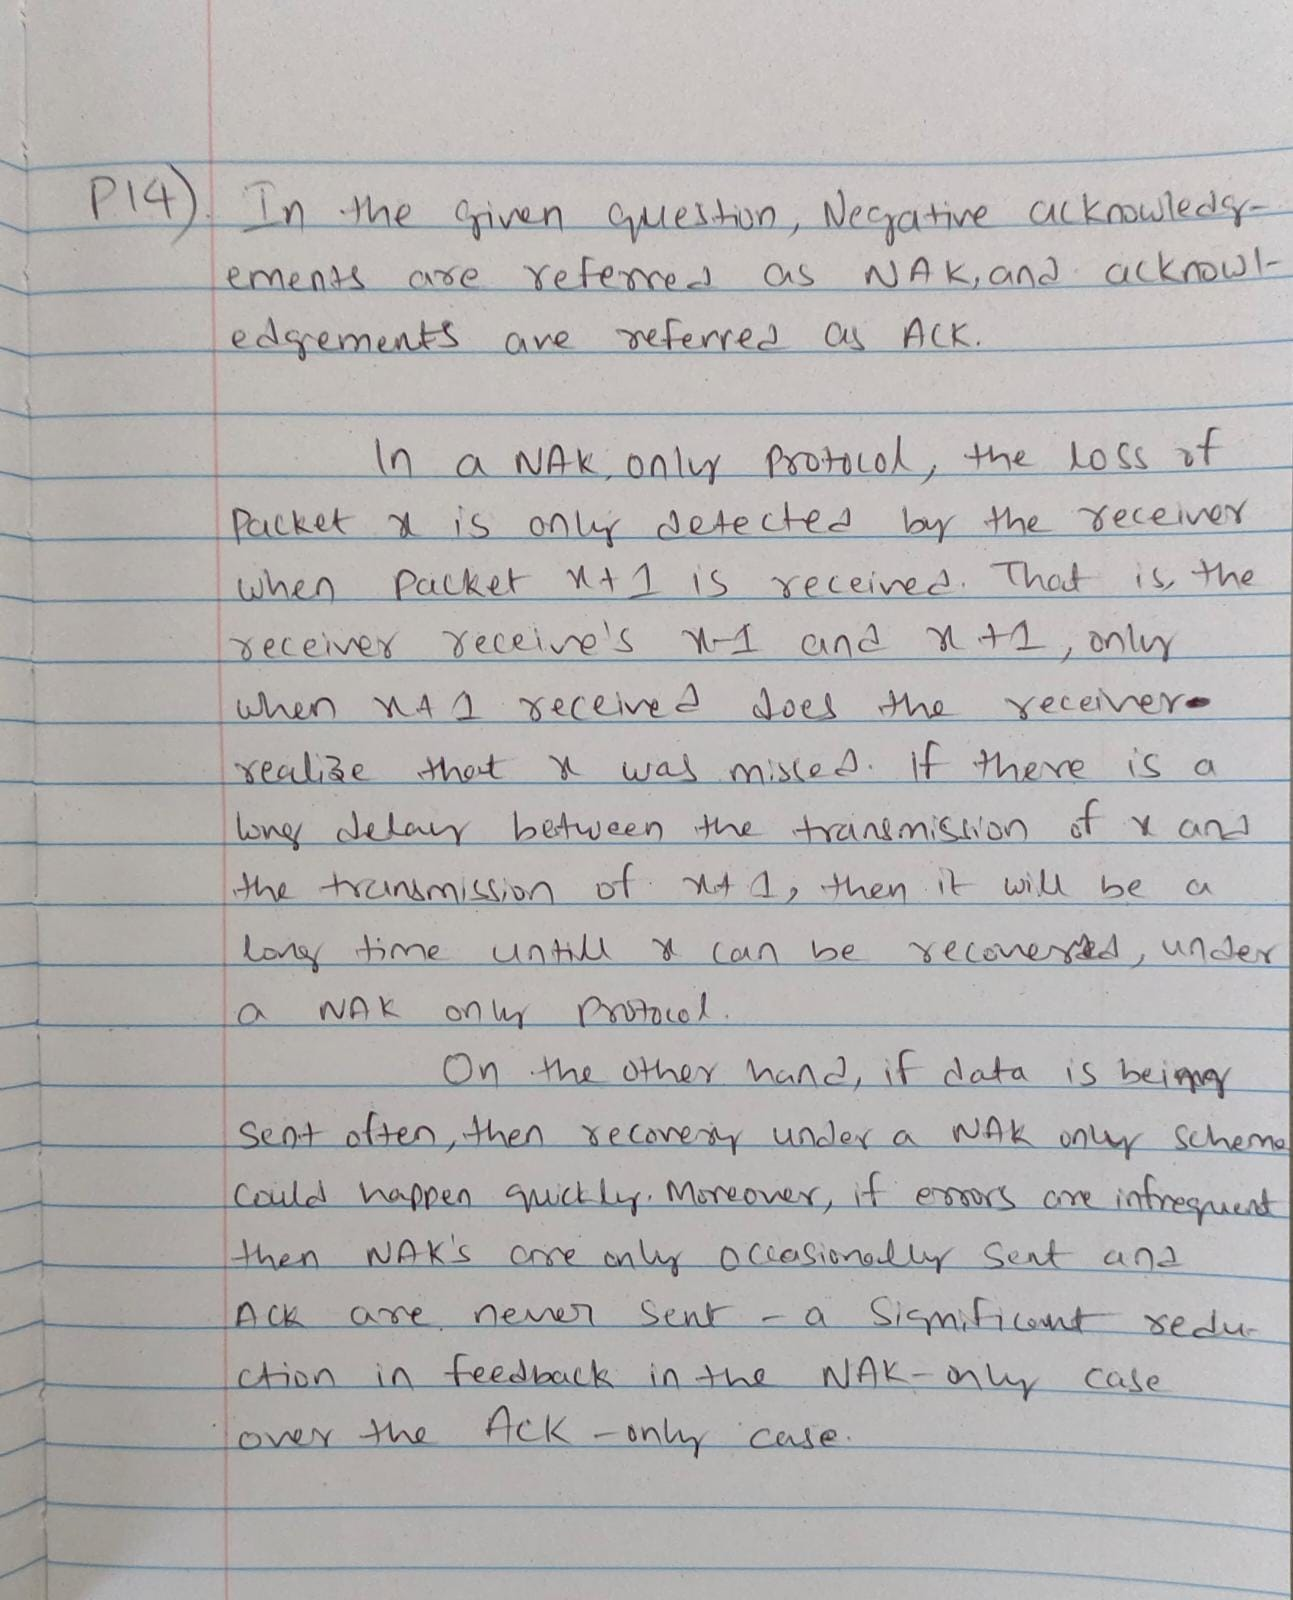 P14). In the given question, Negative acknowledg-
ements are referred as NAK, and acknowl-
edgements are referred as ACK.
In a NAK only protocol, the loss of
Packet x is only detected by the receiver
when Packet x+1 is received. That is, the
receiver receive's x-1 and x+1, only
when x+1 received does the receiver
realize that x was missed. if there is a
long delay between the transmission of x and
the transmission of x+1, then it will be a
long time untill x can be recovered, under
a NAK only protocol.
On the other hand, if data is being
sent often, then recovery under a NAK only scheme
could happen quickly. Moreover, if errors are infrequent
then NAK's are only occasionally sent and
ACK are never sent - a significant redu-
ction in feedback in the NAK-only case
over the ACK-only case.